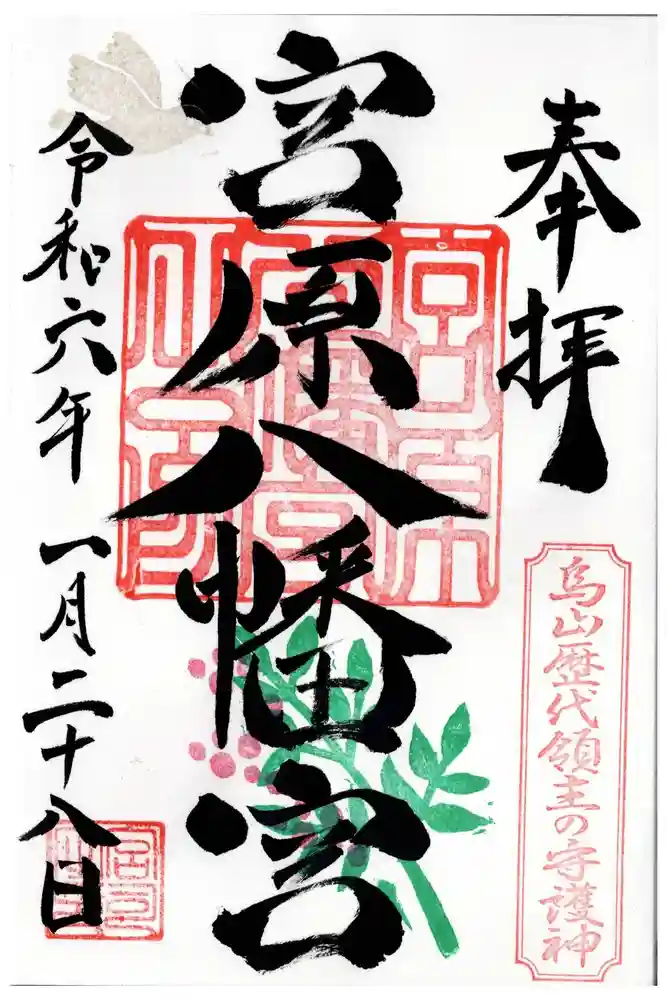 奉拝
烏山歴代領主の守護神
宮原八幡宮
令和六年 一月二十八日